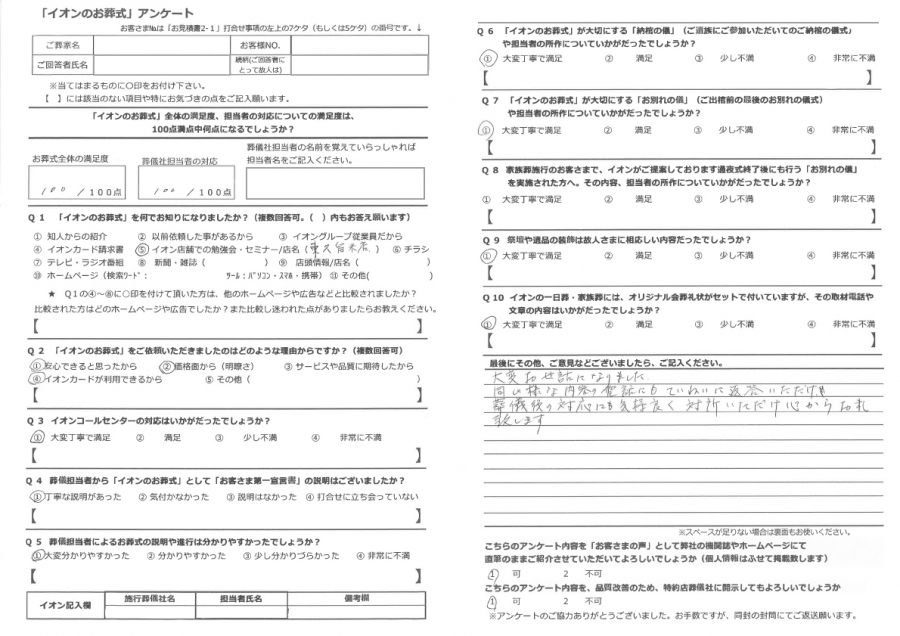 「イオンのお葬式」アンケート
お客さま№は「お見積書2-1」打合せ事項の左上の7ケタ（もしくは5ケタ）の番号です。↓
ご葬家名
お客様NO.
ご回答者氏名
続柄(ご回答者にとって故人は)
※当てはまるものに○印をお付け下さい。
【　】には該当のない項目や特にお気づきの点をご記入願います。
「イオンのお葬式」全体の満足度、担当者の対応についての満足度は、
100点満点中何点になるでしょうか？
お葬式全体の満足度
葬儀社担当者の対応
葬儀社担当者の名前を覚えていらっしゃれば
担当者名をご記入ください。
100 ／100点
100 ／100点
Q 1　「イオンのお葬式」を何でお知りになりましたか？（複数回答可。（　）内もお答え願います）
① 知人からの紹介　② 以前依頼した事があるから　③ イオングループ従業員だから
④ イオンカード請求書　⑤ イオン店舗での勉強会・セミナー/店名（東久留米店）　⑥ チラシ
⑦ テレビ・ラジオ番組　⑧ 新聞・雑誌（　　　）　⑨ 店頭情報/店名（　　　）
⑩ ホームページ（検索ﾜｰﾄﾞ：　　　ﾂｰﾙ：ﾊﾟｿｺﾝ・ｽﾏﾎ・携帯）　⑪ その他(　　　)
★　Q１の④～⑥に○印を付けて頂いた方は、他のホームページや広告などと比較されましたか？
比較された方はどのホームページや広告でしたか？また比較し迷われた点がありましたらお教えください。
【　　　】
Q 2　「イオンのお葬式」をご依頼いただきましたのはどのような理由からですか？（複数回答可）
①安心できると思ったから　②価格面から（明瞭さ）　③ サービスや品質に期待したから
④イオンカードが利用できるから　⑤ その他（　　　）
【　　　】
Q 3　イオンコールセンターの対応はいかがだったでしょうか？
① 大変丁寧で満足　②　満足　③　少し不満　④　非常に不満
【　　　】
Q 4　葬儀担当者から「イオンのお葬式」として「お客さま第一宣言書」の説明はございましたか？
①丁寧な説明があった　② 気付かなかった　③ 説明はなかった　④ 打合せに立ち会っていない
【　　　】
Q 5　葬儀担当者によるお葬式の説明や進行は分かりやすかったでしょうか？
①大変分かりやすかった　② 分かりやすかった　③ 少し分りづらかった　④ 非常に不満
【　　　】
イオン記入欄
施行葬儀社名
担当者氏名
備考欄
Q 6　「イオンのお葬式」が大切にする「納棺の儀」（ご遺族にご参加いただいてのご納棺の儀式）
や担当者の所作についていかがだったでしょうか？
① 大変丁寧で満足　②　満足　③　少し不満　④　非常に不満
【　　　】
Q 7　「イオンのお葬式」が大切にする「お別れの儀」（ご出棺前の最後のお別れの儀式）
や担当者の所作についていかがだったでしょうか？
① 大変丁寧で満足　②　満足　③　少し不満　④　非常に不満
【　　　】
Q 8　家族葬施行のお客さまで、イオンがご提案しております通夜式終了後にも行う「お別れの儀」
を実施された方へ。その内容、担当者の所作についていかがだったでしょうか？
① 大変丁寧で満足　②　満足　③　少し不満　④　非常に不満
【　　　】
Q 9　祭壇や遺品の装飾は故人さまに相応しい内容だったでしょうか？
① 大変丁寧で満足　②　満足　③　少し不満　④　非常に不満
【　　　】
Q 10　イオンの一日葬・家族葬には、オリジナル会葬礼状がセットで付いていますが、その取材電話や
文章の内容はいかがだったでしょうか？
① 大変丁寧で満足　②　満足　③　少し不満　④　非常に不満
【　　　】
最後にその他、ご意見などございましたら、ご記入ください。
大変お世話になりました
同じ様な内容の電話にもていねいに返答いただけ
葬儀後の対応にも気持良く対所いただけ心からお礼
致します
※スペースが足りない場合は裏面もお使いください。
こちらのアンケート内容を「お客さまの声」として弊社の機関誌やホームページにて
直筆のままご紹介させていただいてよろしいでしょうか（個人情報はふせて掲載致します）
1　可　　2　不可
こちらのアンケート内容を、品質改善のため、特約店葬儀社に開示してもよろしいでしょうか
1　可　　2　不可
※アンケートのご協力ありがとうございました。お手数ですが、同封の封筒にてご返送願います。